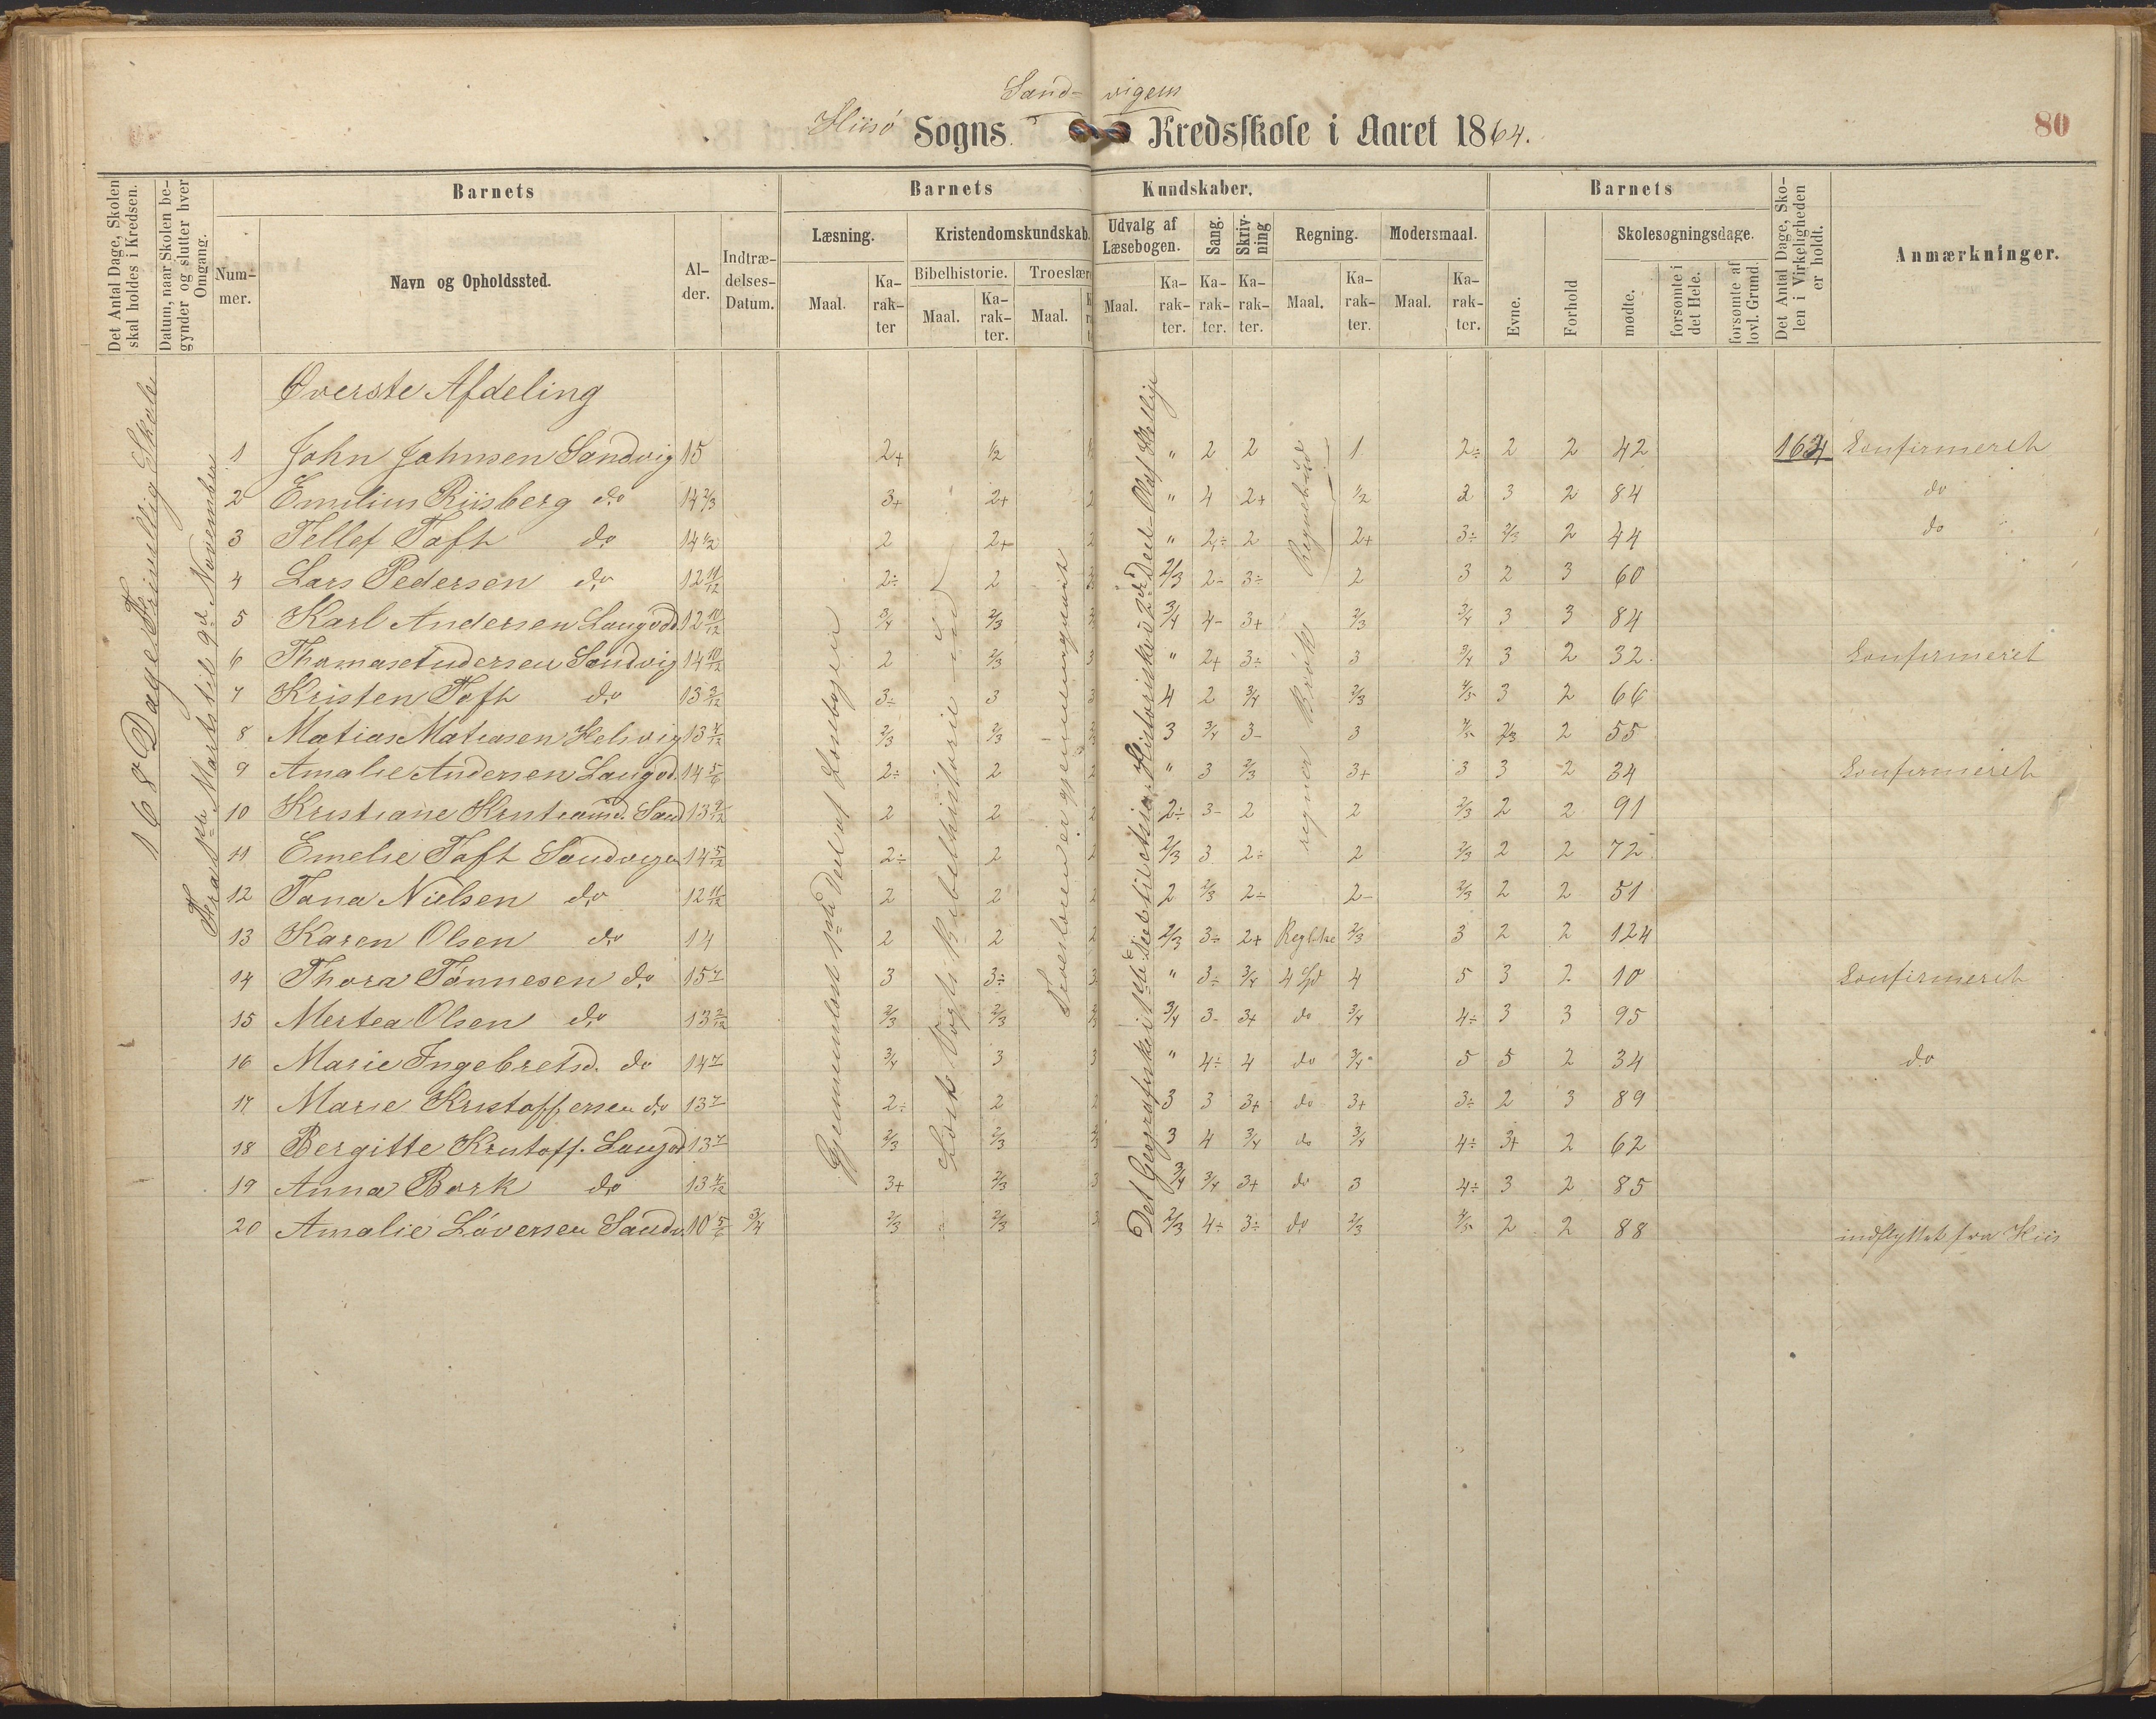 Sand-vigens
Hiisö Sogns Kredsskole i Aaret 1864.
80
Det Antal Dage, Skolen skal holdes i Kredsen.
Datum, naar Skolen begynder og slutter hver Omgang.
Barnets
Barnets Kundskaber.
Barnets
Det Antal Dage, Skolen i Virkeligheden er holdt.
Anmærkninger.
Nummer.
Navn og Opholdssted.
Alder.
Indtrædelses-Datum.
Læsning.
Kristendomskundskab.
Udvalg af Læsebogen.
Sang.
Skrivning
Regning.
Modersmaal.
Evne.
Forhold
Skolesøgningsdage.
Bibelhistorie.
Troeslær
mødte.
forsømte i det Hele.
forsømte af lovl. Grund.
Maal. Karakter Maal. Karakter. Maal. Maal. Karakter. Karakter. Karakter. Maal. Karakter. Maal. Karakter.
168 Dage Frivillig Skole
Fra 1ste Marts til 9de November
Gjennemlæst 1ste Deel af Læsebogen
Læst Vogts Bibelhistorie ud
Troeslæren er gjennemgaaet
Det Geografiske i 1ste Deel til Asia. Historiske 2den Deel - Olaf Hellige
Regnet ud
regner Brök
Överste Afdeling
1 John Johnsen Sandvig 15 2+ ½ " 2 2 1 2÷ 2 2 42 164 Konfirmeret
2 Emilius Riisberg do 14 2/3 3+ 2+ 2 " 4 2+ ½ 2 3 2 84 do
3 Tellef Toft do 14 ½ 2 2+ 2 " 2÷ 2 2+ 3÷ 2/3 2 44 do
4 Lars Pedersen do 12 11/12 2÷ 2 2/3 2- 3÷ 2 3 2 3 60
5 Karl Andersen Langvod 12 10/12 3/4 2/3 3/4 4- 3+ 2/3 3/4 3 3 84
6 Thomas Andersen Sandvig 14 10/12 2 2/3 3 " 2+ 3÷ 3 3/4 3 2 32 Konfirmeret
7 Kristen Toft do 13 3/12 3÷ 3 3 4 2 3/4 2/3 4/5 3 2 66
8 Matias Matiasen Helsvig 13 4/12 2/3 2/3 3 3/4 3- 3 4/5 2/3 2 55
9 Amalie Andersen Langvod. 14 5/6 2÷ 2 2 " 3 2/3 3+ 3 3 2 34 Konfirmeret
10 Kristiane Kristiansd. Sand 13 9/12 2 2 2 2÷ 3- 2 2 2/3 2 2 91
11 Emelie Toft Sandvigen 14 5/12 2÷ 2 2 2/3 3 2÷ 2 2/3 2 2 72
12 Tona Nielsen do 12 11/12 2 2 2 2 2/3 2÷ 2- 2/3 2 2 51
13 Karen Olsen do 14 2 2 2 2/3 3÷ 2+ 2/3 3 2 2 124
14 Thora Tönnesen do 15 3 3÷ 3 " 3÷ 3/4 4 Sp 4 5 3 2 10 Konfirmeret
15 Mertea Olsen do 13 2/12 2/3 2/3 3/4 3- 3+ do 3/4 4÷ 3 3 95
16 Marie Ingebretsd. do 14 3/4 3 3 " 4÷ 4 do 3/4 5 5 2 34 do
17 Marie Kristoffersen do 13 2÷ 2 2 3 3 3+ do 3+ 3÷ 2 3 89
18 Bergitte Kristoff. Langvod 13 2/3 2/3 3 4 3/4 do 3/4 4÷ 3+ 2 62
19 Anna Bork do 13 4/12 3+ 2/3 3 3/4 3/4 3+ do 3 4÷ 3 2 85
20 Amalie Löversen Sandv. 10 5/6 3/4 2/3 2/3 3 2/3 4÷ 3÷ do 2/3 4/5 2 2 88 indflyttet fra Hiis